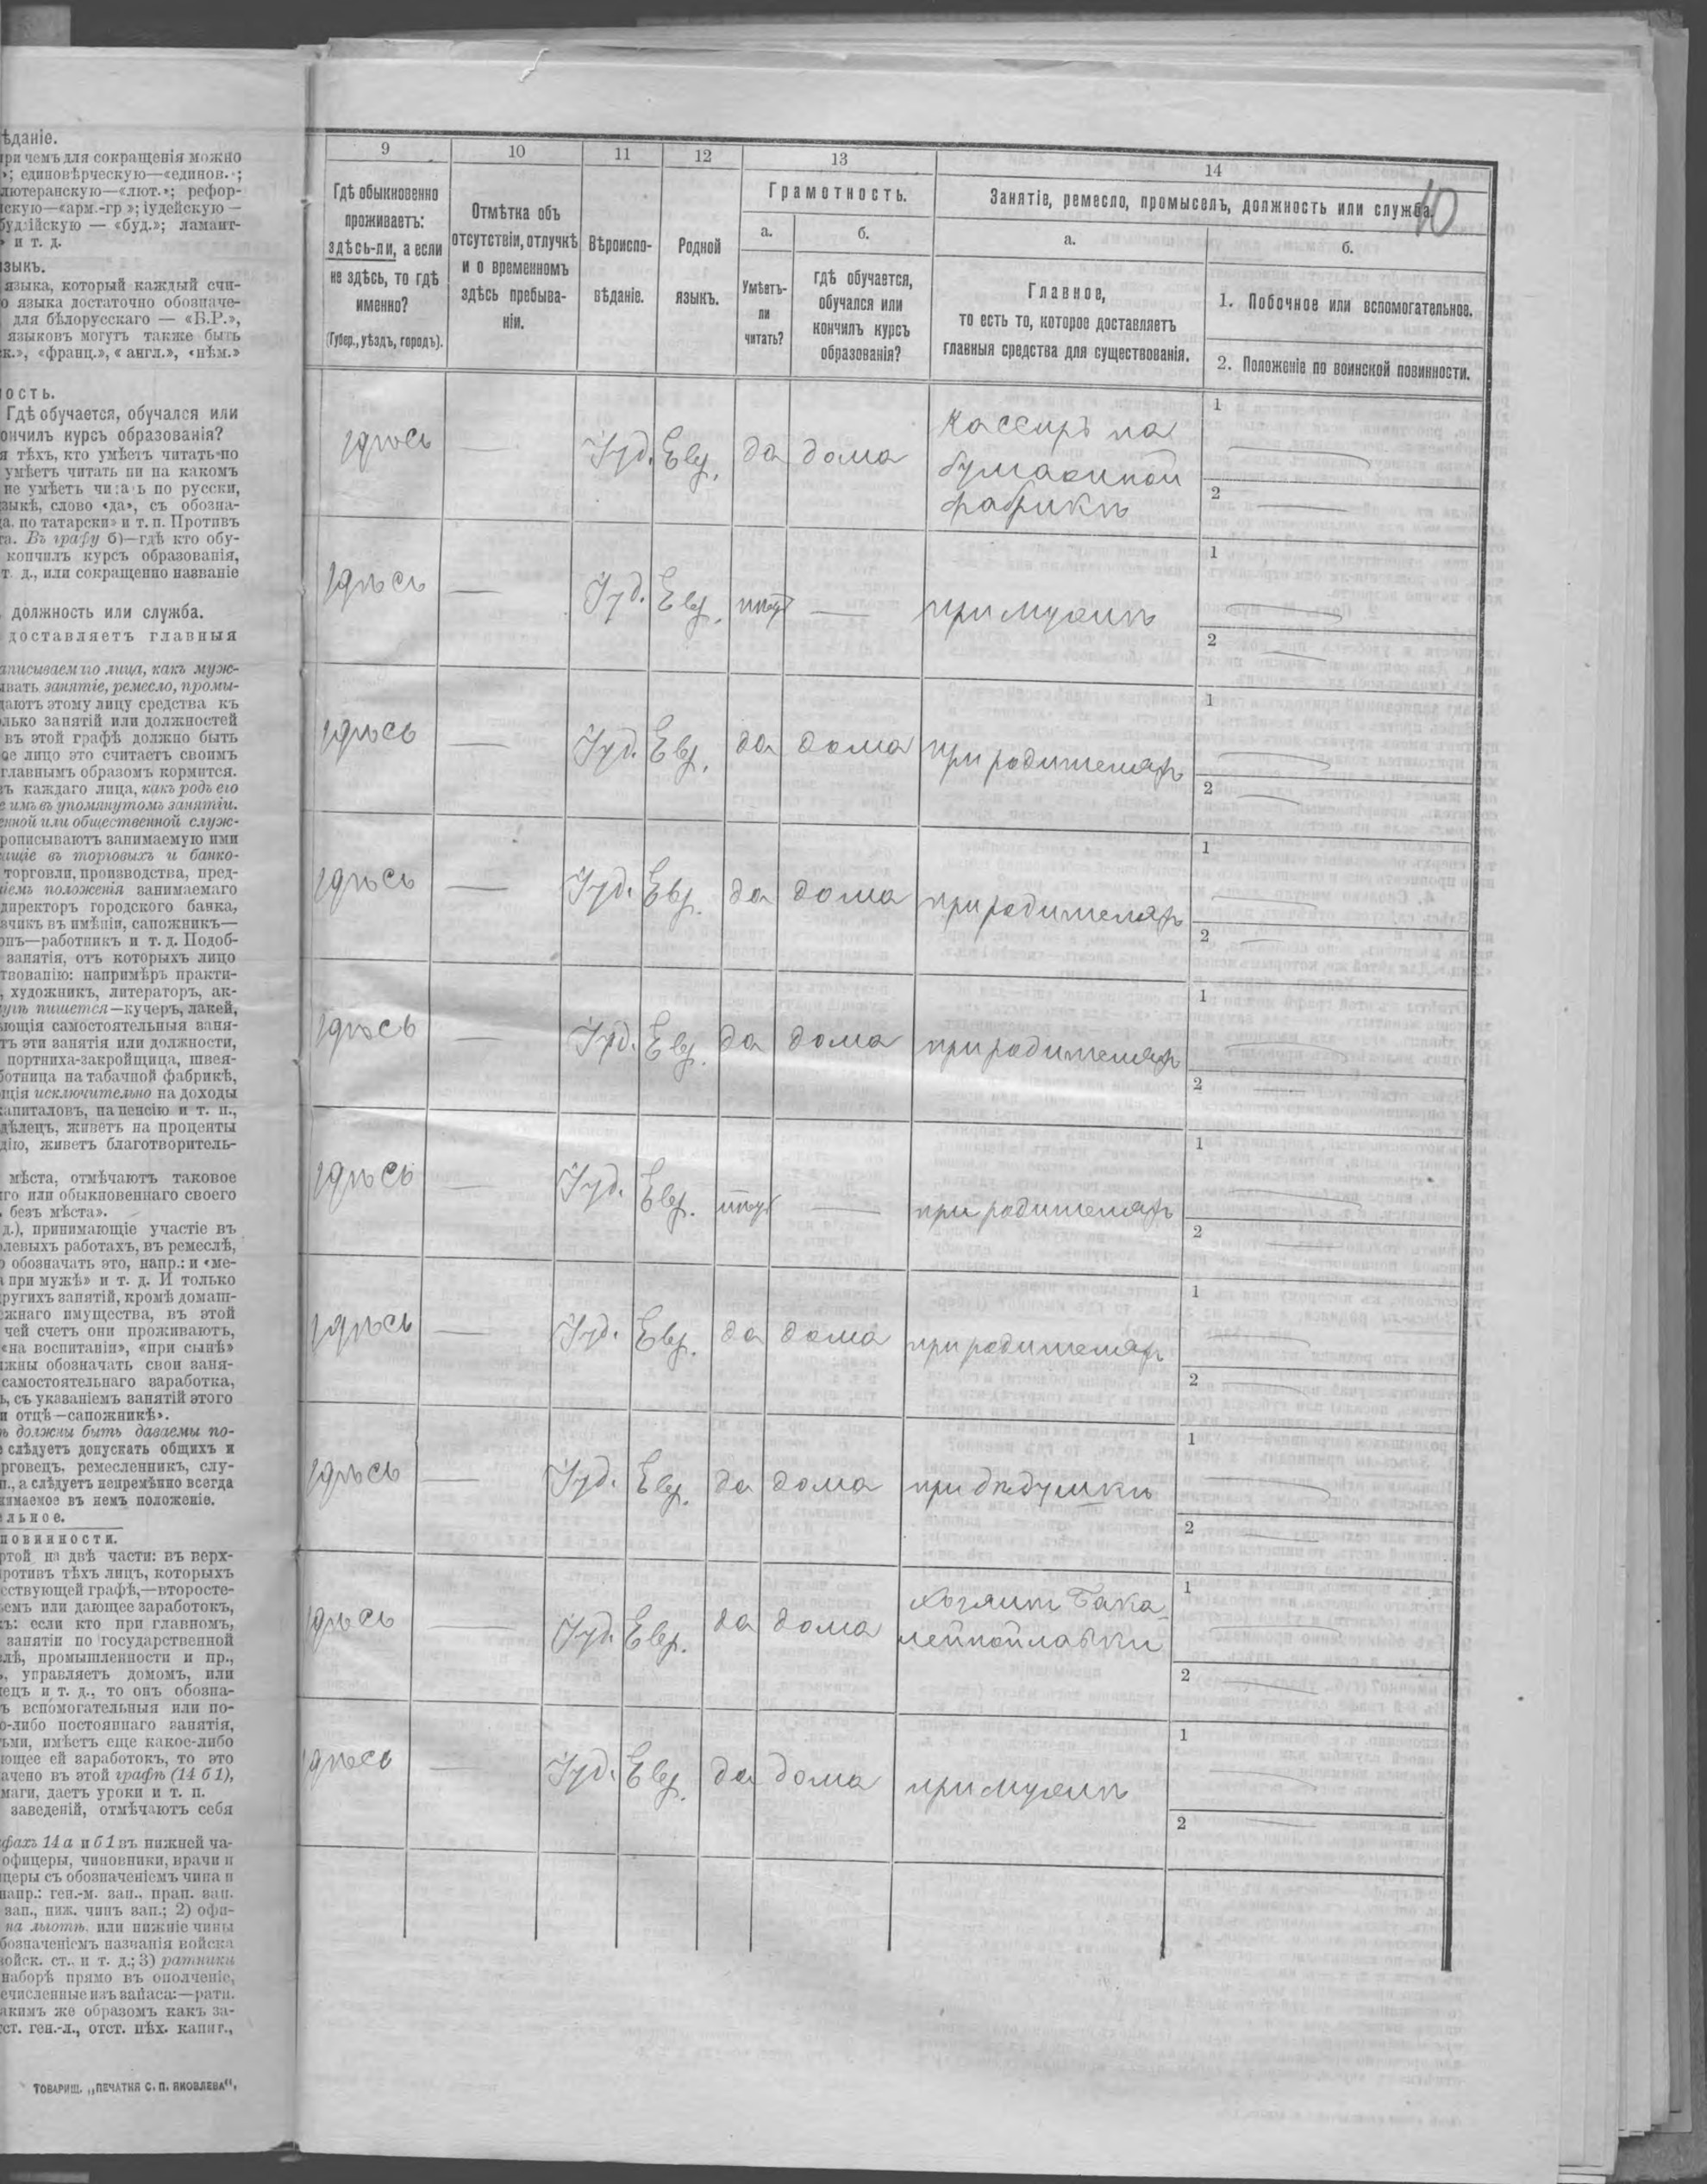 ѣданіе.
ри чемъ для сокращенія можно
»; единовѣрческую—«единов.»;
лютеранскую—«лют.»; рефор-
скую—«арм.-гр.»; іудейскую —
буддійскую — «буд.»; ламаит-
» и т. д.
зыкъ.
языка, который каждый счи-
о языка достаточно обозначе-
для бѣлорусскаго — «Б.Р.»,
языковъ могутъ также быть
к.», «франц.», «англ.», «нѣм.»
ость.
Гдѣ обучается, обучался или
ончилъ курсъ образованія?
я тѣхъ, кто умѣетъ читать по
умѣетъ читать ни на какомъ
не умѣетъ читать по русски,
зыкѣ, слово «да», съ обозна-
а. по татарски» и т. п. Противъ
та. Въ графу б)—гдѣ кто обу-
кончилъ курсъ образованія,
т. д., или сокращенно названіе
должность или служба.
доставляетъ главныя
аписываемаго лица, какъ муж-
ывать занятіе, ремесло, промы-
даютъ этому лицу средства къ
лько занятій или должностей
въ этой графѣ должно быть
ое лицо это считаетъ своимъ
главнымъ образомъ кормится.
ъ каждаго лица, какъ родъ его
е имъ въ упомянутомъ занятіи.
енной или общественной служ-
рописываютъ занимаемую ими
ащіе въ торговыхъ и банко-
торговли, производства, пред-
іемъ положенія занимаемаго
директоръ городского банка,
зчикъ въ имѣніи, сапожникъ—
онъ—работникъ и т. д. Подоб-
занятія, отъ которыхъ лицо
твованію: напримѣръ практи-
, художникъ, литераторъ, ак-
угѣ пишется—кучеръ, лакей,
ющія самостоятельныя заня-
ть эти занятія или должности,
портниха-закройщица, швея-
ботница на табачной фабрикѣ,
щія исключительно на доходы
капиталовъ, на пенсію и т. п.,
дѣлецъ, живетъ на проценты
сію, живетъ благотворитель-
мѣста, отмѣчаютъ таковое
го или обыкновеннаго своего
, безъ мѣста».
д.), принимающіе участіе въ
левыхъ работахъ, въ ремеслѣ,
о обозначать это, напр.: и «ме-
и при мужѣ» и т. д. И только
другихъ занятій, кромѣ домаш-
жнаго имущества, въ этой
чей счетъ они проживаютъ,
«на воспитаніи», «при сынѣ»
жны обозначать свои заня-
самостоятельнаго заработка,
ь, съ указаніемъ занятій этого
и отцѣ—сапожникѣ».
ъ должны быть даваемы по-
слѣдуетъ допускать общихъ и
рговецъ, ремесленникъ, слу-
п., а слѣдуетъ непремѣнно всегда
нимаемое въ немъ положеніе.
льное.
повинности.
ртой на двѣ части: въ верх-
ротивъ тѣхъ лицъ, которыхъ
ествующей графѣ,—второсте-
емъ или дающее заработокъ,
ъ: если кто при главномъ,
занятіи по государственной
лѣ, промышленности и пр.,
ь, управляетъ домомъ, или
ецъ и т. д., то онъ обозна-
ъ вспомогательныя или по-
о-либо постояннаго занятія,
ьми, имѣетъ еще какое-либо
ющее ей заработокъ, то это
ачено въ этой графѣ (14 б 1),
маги, даетъ уроки и т. п.
заведеній, отмѣчаютъ себя
фахъ 14 а и б 1 въ нижней ча-
офицеры, чиновники, врачи и
церы съ обозначеніемъ чина и
напр.: ген.-м. зап., прап. зап.
зап., ниж. чинъ зап.; 2) офи-
на льготѣ, или нижніе чины
бозначеніемъ названія войска
ойск. ст., и т. д.; 3) ратники
наборѣ прямо въ ополченіе,
ечисленные изъ запаса:—ратн.
акимъ же образомъ какъ за-
ст. ген.-л., отст. пѣх. капит.,
ТОВАРИЩ. „ПЕЧАТНЯ С. П. ЯКОВЛЕВА“.
10
9 10 11 12 13 14
Гдѣ обыкновенно
проживаетъ:
здѣсь-ли, а если
не здѣсь, то гдѣ
именно?
(Губер., уѣздъ, городъ).
Отмѣтка объ
отсутствіи, отлучкѣ
и о временномъ
здѣсь пребыва-
ніи.
Вѣроиспо-
вѣданіе.
Родной
языкъ.
Грамотность.
а.
Умѣетъ-
ли
читать?
б.
гдѣ обучается,
обучался или
кончилъ курсъ
образованія?
Занятіе, ремесло, промыселъ, должность или служба.
а.
Главное,
то есть то, которое доставляетъ
главныя средства для существованія.
б.
1. Побочное или вспомогательное.
2. Положеніе по воинской повинности.
здѣсь — Іуд. Евр. да дома Кассиръ на
бумажной
фабрикѣ
1 —
2 —
здѣсь — Іуд. Евр. нѣтъ — при мужѣ
1 —
2 —
здѣсь — Іуд. Евр. да дома при родителяхъ
1 —
2 —
здѣсь — Іуд. Евр. да дома при родителяхъ
1 —
2 —
здѣсь — Іуд. Евр. да дома при родителяхъ
1 —
2 —
здѣсь — Іуд. Евр. нѣтъ — при родителяхъ
1 —
2 —
здѣсь — Іуд. Евр. да дома при родителяхъ
1 —
2 —
здѣсь — Іуд. Евр. да дома при дѣдушкѣ
1 —
2 —
здѣсь — Іуд. Евр. да дома хозяинъ Бака-
лейной лавки
1 —
2 —
здѣсь — Іуд. Евр. да дома при мужѣ
1 —
2 —